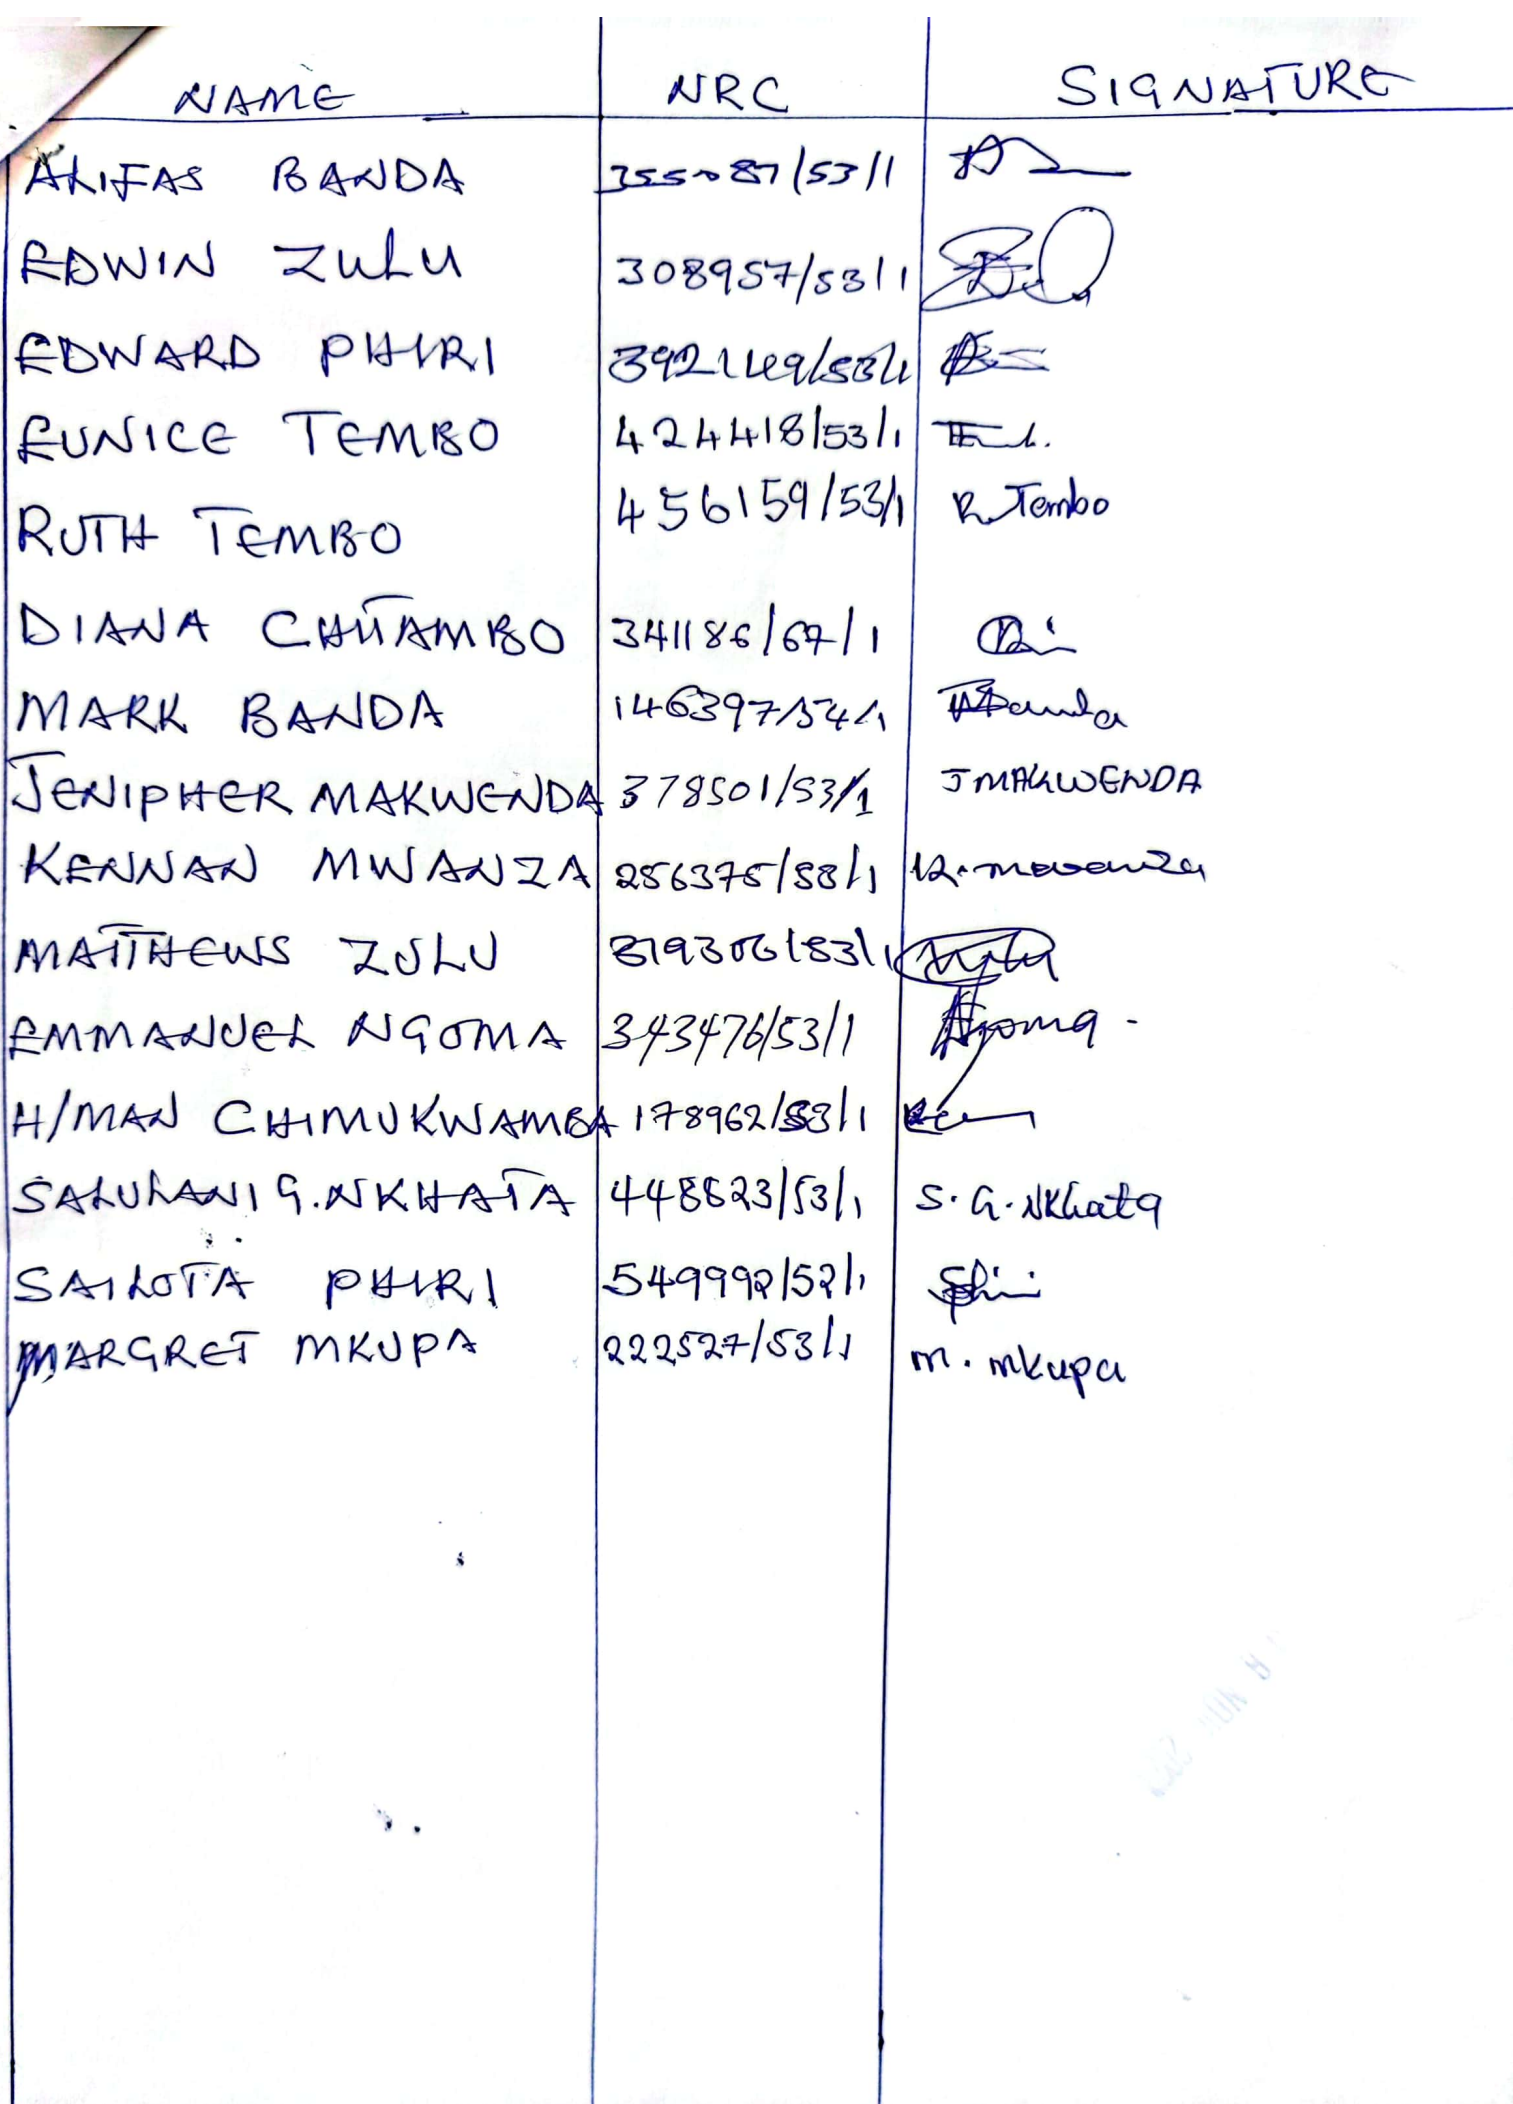 NAME NRC SIGNATURE
ALIFAS BANDA 355087/53/1
EDWIN ZULU 308957/53/1
EDWARD PHIRI 392149/53/1
EUNICE TEMBO 424418/53/1
RUTH TEMBO 456159/53/1 R. Tembo
DIANA CHITAMBO 341186/67/1
MARK BANDA 146397/54/1 Banda
JENIPHER MAKWENDA 378501/53/1 J MAKWENDA
KENNAN MWANZA 256375/53/1 K. mwanza
MATTHEWS ZULU 319306/53/1
EMMANUEL NGOMA 343476/53/1 Ngoma
H/MAN CHIMUKWAMBA 178962/53/1
SALULANI G. NKHATA 448823/53/1 S. G. NKhata
SAILOTA PHIRI 549992/52/1
MARGRET MKUPA 222527/53/1 m. mkupa